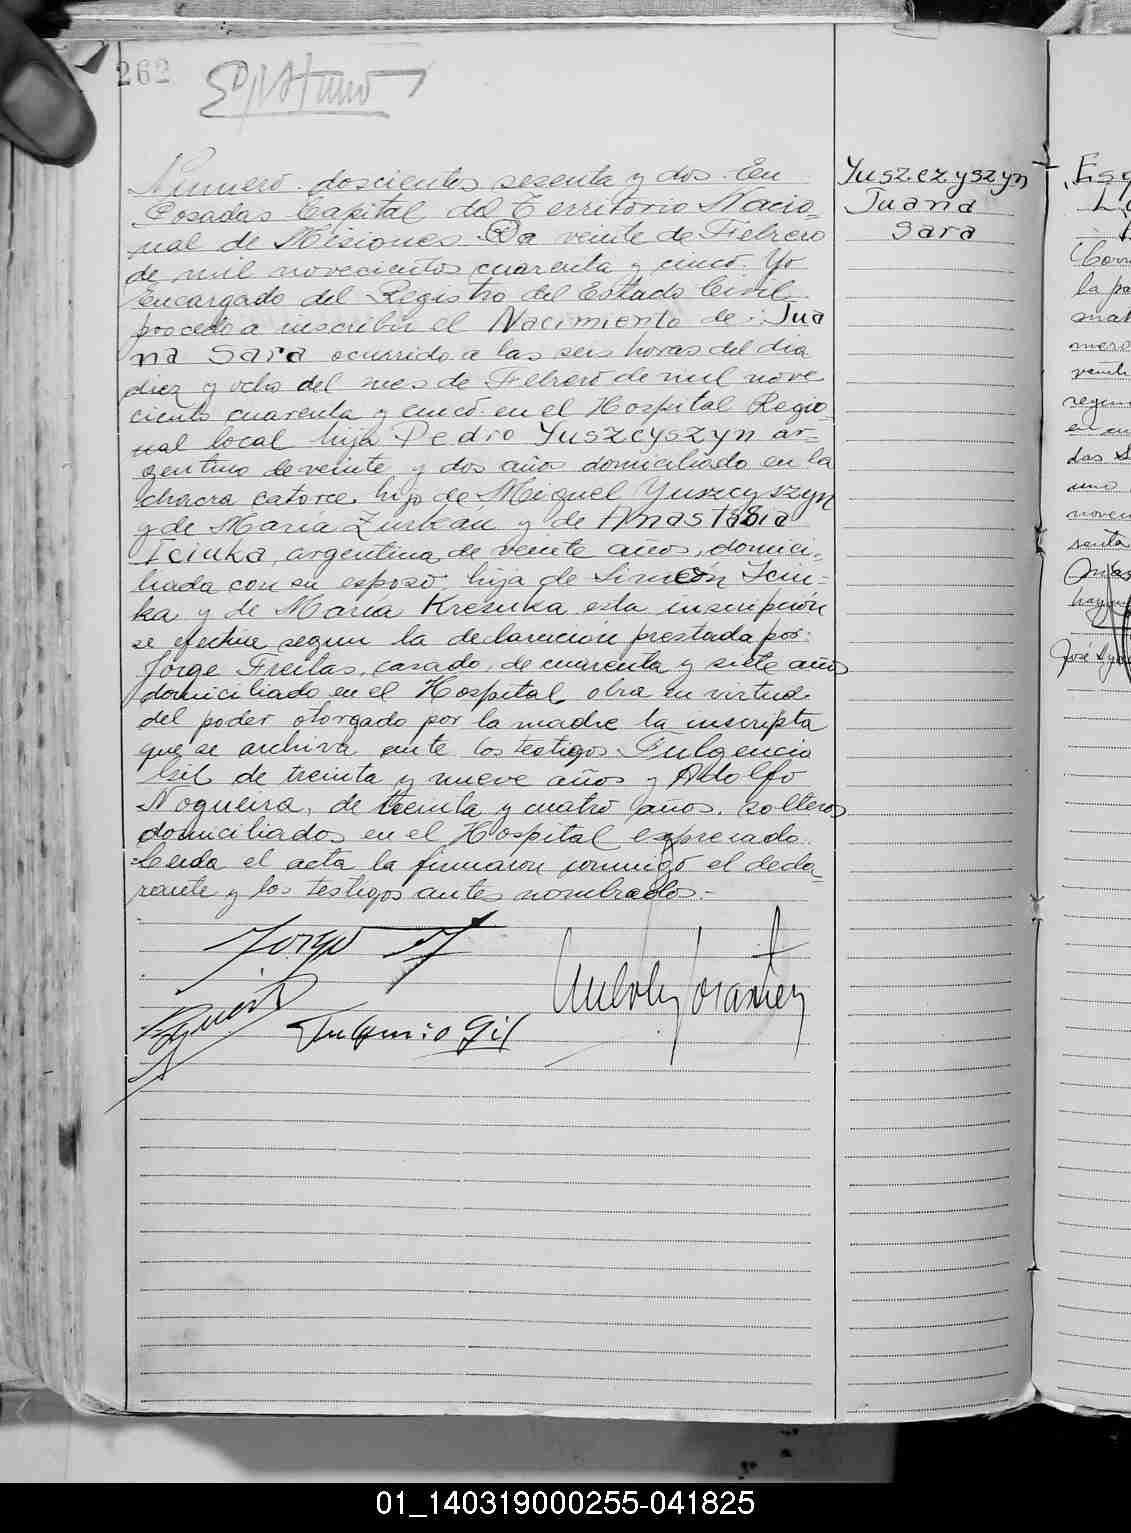 262
Numero doscientos sesenta y dos. En
Posadas Capital del Territorio Nacio-
nal de Misiones a veinte de Febrero
de mil novecientos cuarenta y cinco. Yo
Encargado del Registro del Estado Civil
procedo a inscribir el Nacimiento de: Jua
na Sara ocurrido a las seis horas del dia
diez y ocho del mes de Febrero de mil nove
ciento cuarenta y cinco en el Hospital Regio-
nal local hija Pedro Yuszcyszyn ar-
gentino de veinte y dos años domiciliado en la
chacra catorce, hijo de Miguel Yuszcyszyn
y de María Zurkán y de Anastasia
Iciuka, argentina, de veinte años, domici-
liada con su esposo hija de Simeón Iciu-
ka y de María Kresuka esta inscripción
se efectua segun la declaración prestada por:
Jorge Freitas, casado, de cuarenta y siete años
domiciliado en el Hospital obra en virtud
del poder otorgado por la madre la inscripta
que se archiva ante los testigos Fulgencio
Gil de treinta y nueve años y Adolfo
Nogueira, de treinta y cuatro años, solteros
domiciliados en el Hospital expresado.
Leida el acta la firmaron conmigo el decla-
rante y los testigos antes nombrados.-
Jorge
Fulgencio Gil
Yuszczyszyn
Juana
Sara
01_140319000255-041825